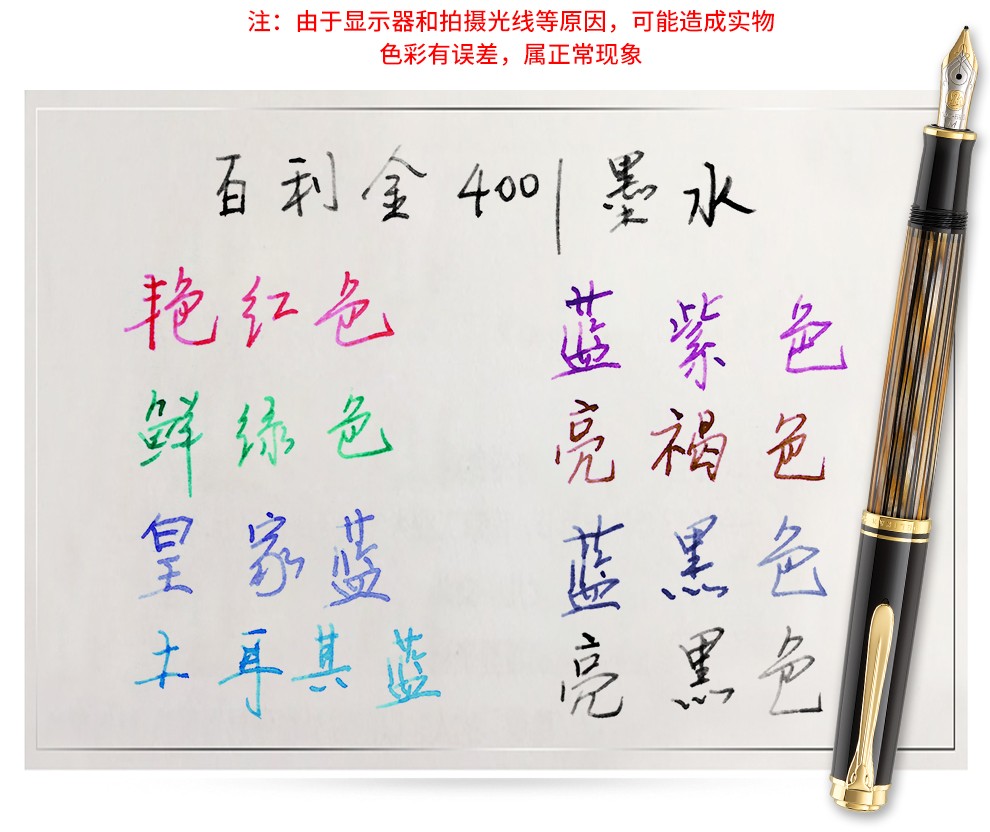 注：由于显示器和拍摄光线等原因，可能造成实物
色彩有误差，属正常现象
百利金4001墨水
艳红色
蓝紫色
鲜绿色
亮褐色
皇家蓝
蓝黑色
土耳其蓝
亮黑色